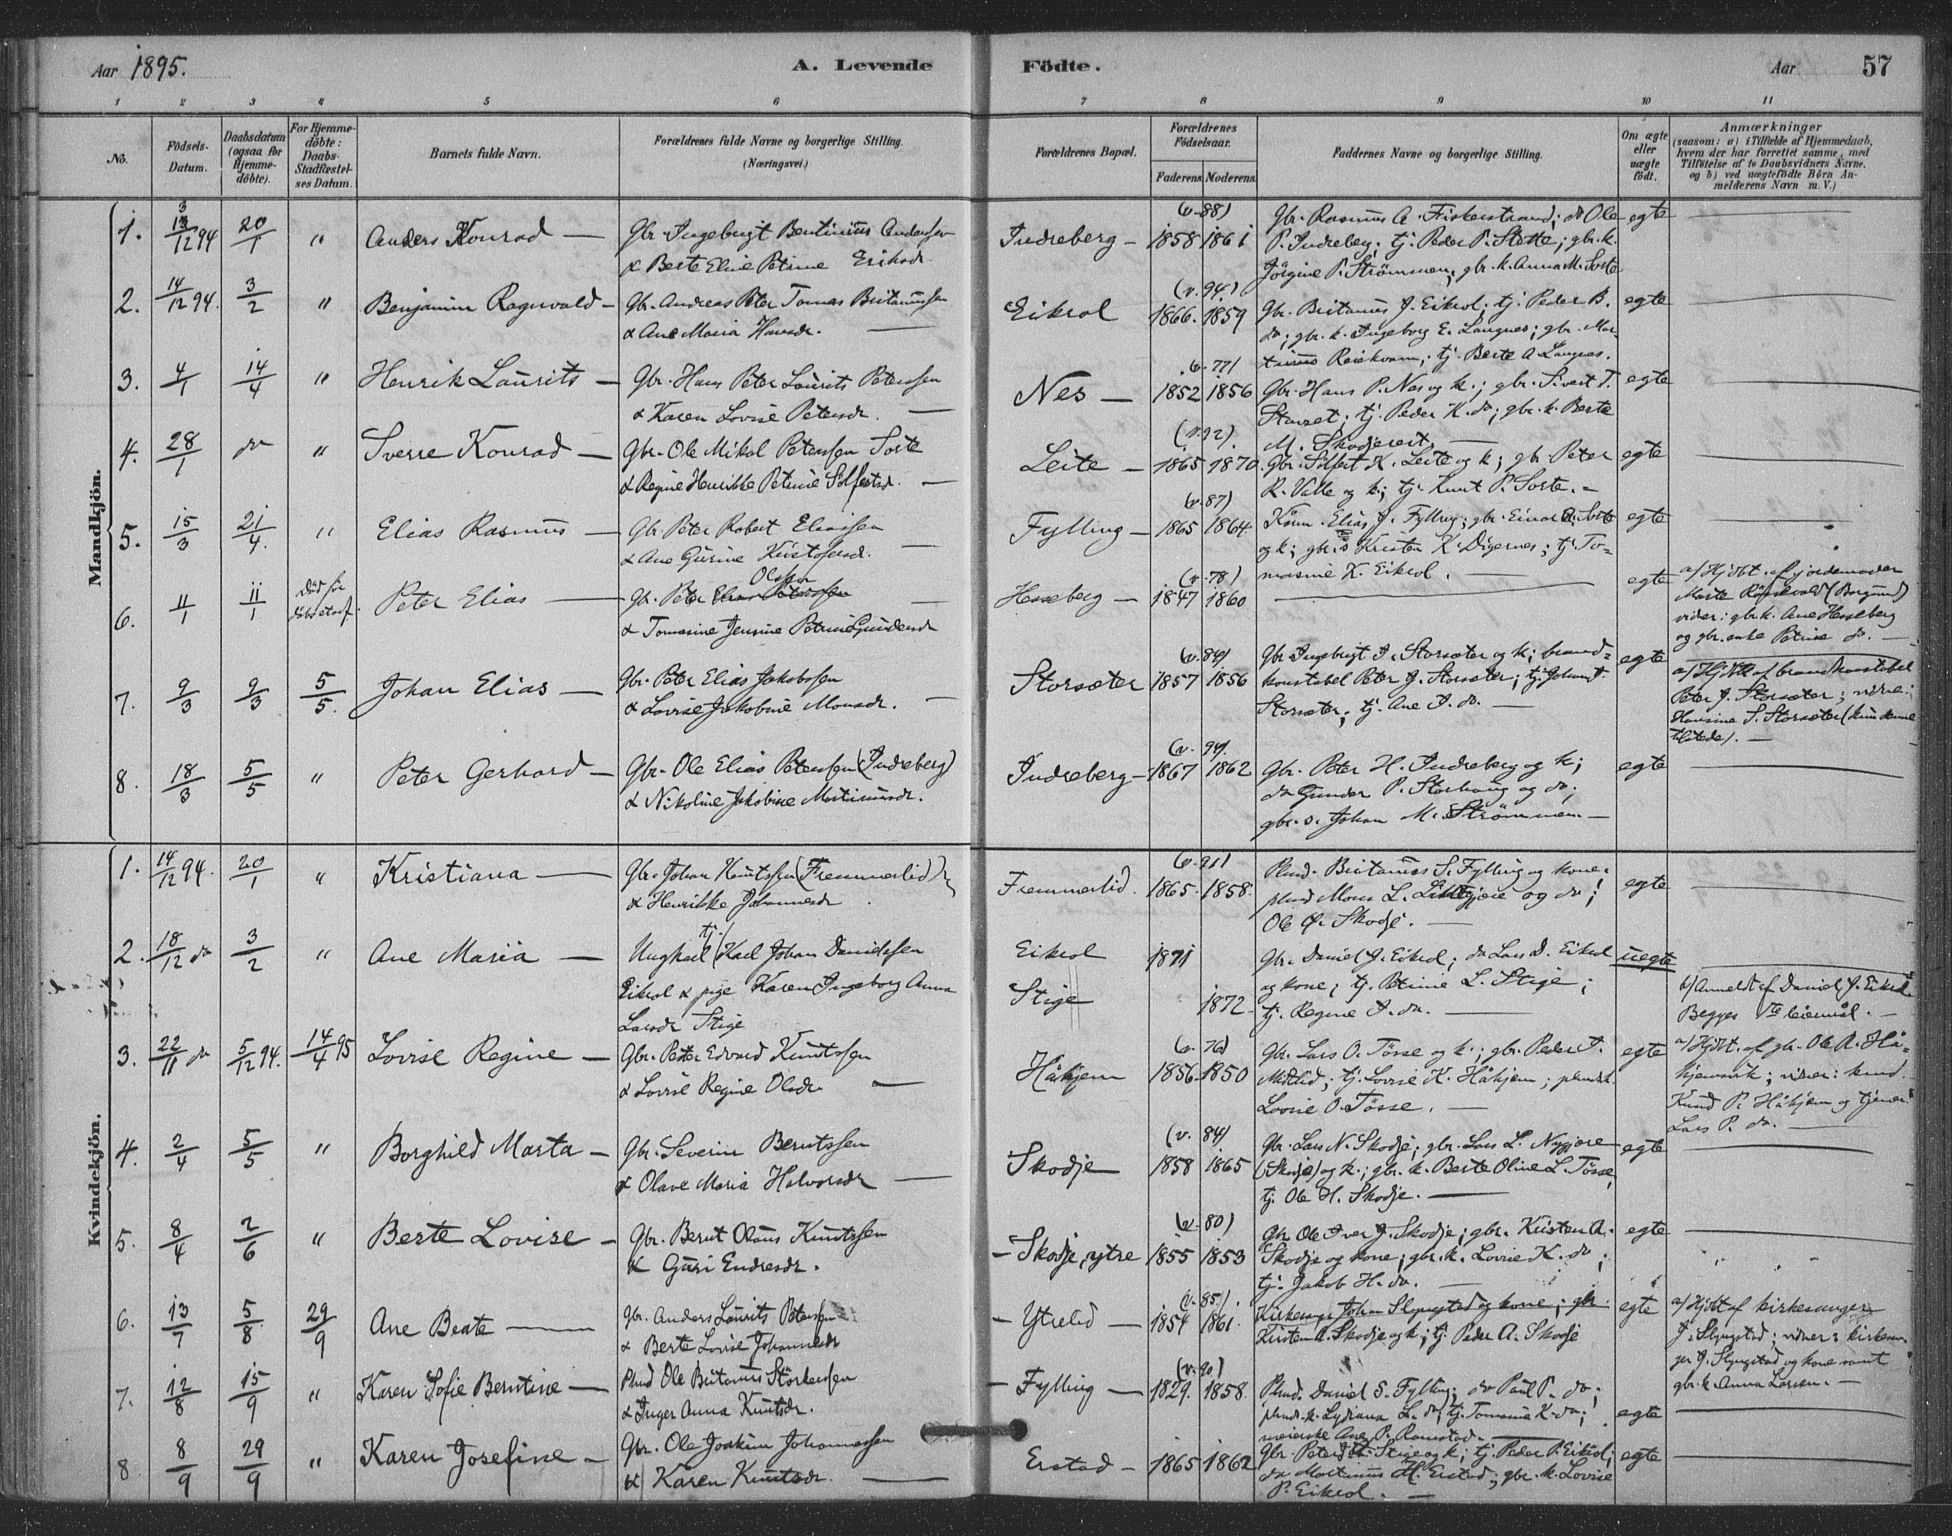 Aar 1895.
A. Levende
Födte.
Aar
57
1 2 3 4 5 6 7 8 9 10 11
No.
Födsels-
Datum.
Daabsdatum
(ogsaa for
Hjemme-
döbte).
For Hjemme-
döbte:
Daabs-
Stadfæstel-
ses Datum.
Barnets fulde Navn.
Forældrenes fulde Navne og borgerlige Stilling.
(Næringsvei.)
Forældrenes Bopæl.
Forældrenes
Födselsaar.
Faderens
Moderens
Faddernes Navne og borgerlige Stilling.
Om ægte
eller
uægte
födt.
Anmærkninger
(saasom: a) i Tilfælde af Hjemmedaab,
hvem der har forrettet samme, med
Tilföielse af to Daabsvidners Navne,
og b) ved uægtefödte Börn An-
melderens Navn m. V.)
Mandkjön.
1. 13/12 94 20/1 " Anders Konrad —
Gbr. Ingebrigt Bentinus Anderssen
& Berte Eline Petrine Eriksdr.
Indreberg — (v. 88)
1858 1861
Gbr. Rasmus A. Fiskerstrand; do Ole
P. Indreberg; tj. Peder P. Stette; gbr. k.
Jörgine P. Strømmen; gbr. k. Anna M. Sorte
egte
2. 14/12 94. 3/2 " Benjamin Ragnvald —
Gbr. Andreas Peter Tomas Britanussen
& Ane Maria Hansdr. —
Eikrol (v. 94)
1866. 1859
Gbr. Britanus J. Eikrol; tj. Peder B.
do; gbr. k. Ingeborg E. Langnes; gbr. Mar-
tinus Reiekvam; tj. Berte A. Langnes.
egte
3. 4/1 14/4 " Henrik Laurits —
Gbr. Hans Peter Laurits Peterssen
& Karen Lovise Petersdr. —
Nes — (v. 77)
1852 1856
Gbr. Hans P. Nes og k.; gbr. Sivert T.
Stavset; tj. Peder K. do; gbr. k. Berte
M. Skodjereit. —
egte
4. 28/1 do " Sverre Konrad —
Gbr. Ole Mikal Peterssen Sorte
& Regine Henrikke Petrine Solfestsdr. —
Leite — (v. 92)
1865 1870.
Gbr. Solfest K. Leite og k; gbr. Peter
R. Valle og k; tj. Knut P. Sorte. —
egte
5. 15/3 21/4. " Elias Rasmus —
Gbr. Peter Robert Eliassen
& Ane Gurine Kristofersdr. —
Fylling — (v. 87)
1865 1864.
Kårm. Elias J. Fylling; gbr. Einar O. Sorte
og k; gbr. s Kristen K. Digernes; tj. To-
masine K. Eikrol. —
egte
6. 11/1 11/1 Död før
dåbsstadf. Peter Elias —
Olssen
Gbr. Peter Elias Peterssen —
& Tomasine Jensine Petrine Gundersdr
Hesseberg — (v. 78)
1847 1860
egte
a/ Hjdbt. af jordemoder
Marte Rørsevald (Borgund)
vidner: gbr. k. Ane Hesseberg
og gbr. enke Petrine do. —
7. 9/3 9/3 5/5. Johan Elias —
Gbr. Peter Elias Jakobssen
& Lovise Jakobine Monsdr. —
Storsæter (v. 84)
1857 1856
Gbr. Ingebrigt I. Storsæter og k; brand-
konstabel Peter J. Storsæter; tj. Johan I.
Storsæter; tj. Ane I. do. —
egte
a/ Hjdbt. af brandkonstabel
Peter J. Storsæter; vidne:
Hansine S. Storsæter (kun denne
tilstede). —
8. 18/3 5/5 " Peter Gerhard —
Gbr. Ole Elias Peterssen (Indreberg)
& Nikoline Jakobine Martinusdr.
Indreberg — (v. 94).
1867 1862
Gbr. Peter H. Indreberg og k;
do Gunder P. Storhaug og do;
gbr. s. Johan M. Strömmen. —
egte
Kvindekjön.
1. 14/12 94. 20/1 " Kristiana —
Gbr. Johan Knutssen (Fremmerlid)
& Henrikke Johannesdr.
Fremmerlid. (v. 91)
1865. 1858.
Plmd. Britanus S. Fylling og kone;
plmd Mons L. Lillegjære og do;
Ole Ø. Skodje. —
egte
2. 18/12 do 3/2 " Ane Maria —
Ungkarl (tj. Karl Johan Danielssen
Eikrol & pige Karen Ingeborg Anna
Larsdr Stige
Eikrol 1871
Stige 1872.
Gbr. Daniel J. Eikrol; do Lars D. Eikrol
og kone; tj. Petrine L. Stige;
tj. Regine I. do. —
uegte
b/ Anmeldt af Daniel J. Eikrol.
Begges 1ste leiermål. —
3. 22/11 do 5/12 94. 14/4 95 Lovise Regine —
Gbr. Petter Edvard Knutssen
& Lovise Regine Olsdr —
Håhjem (v. 76)
1856. 1850
Gbr. Lars O. Tösse og k.; gbr. Peder I.
Midtlid; tj. Lovise K. Håhjem; plmds k.
Lovise O. Tösse. —
egte
a/ Hjdbt. af gbr. Ole R. Hå-
hjemsvik; vidner: kmd.
Knud P. Håhjem og tjener
Lars P. do. —
4. 2/4 5/5 " Borghild Marta —
Gbr. Severin Berntssen
& Olave Maria Halvorsdr —
Skodje (v. 84)
1858 1865
Gbr. Lars N. Skodje; gbr. Lars L. Nygjære
(Skodje) og k.; gbr. k. Berte Oline L. Tösse;
tj. Ole H. Skodje. —
egte
5. 8/4 2/6 " Berte Lovise —
Gbr. Bernt Olaus Knutssen
& Guri Endresdr.
— Skodje, ytre (v. 80)
1855 1853
Gbr Ole Iver J. Skodje; gbr. Kristen A.
Skodje og kone; gbr. k. Lovise K. do;
tj. Jakob H. do. —
egte
6. 13/7 5/8 29/9 Ane Beate —
Gbr. Anders Laurits Peterssen
& Berte Lovise Johannesdr
— Ytrelid — (v. 85).
1854 1861.
Kirkesanger Johan Slyngstad og kone; gbr
Kristen A. Skodje og k; tj. Peder A. Skodje
egte
a/ Hjdbt af kirkesanger
J. Slyngstad; vidner: kirkesan-
ger J. Slyngstad og kone samt
gbr. k. Anna Larsen. —
7. 12/8 15/9 " Karen Sofie Berntine —
Plmd Ole Britanus Störkerssen
& Inger Anna Knutsdr.
— Fylling — (v. 90)
1829. 1858.
Plmd. Daniel S. Fylling; do Paul P. do;
plmds. k. Lydiana L. do; tj. Tomasine K. do;
meierske Ane P. Ramstad. —
egte
8. 8/9 29/9 " Karen Josefine —
Gbr. Ole Joakim Johannessen
& Karen Knutsdr. —
Erstad — 1865 1862
Gbr. Peter Stige og k; tj. Peder P. Eikrol;
do Martinus H. Erstad; gbr. k. Lovise
P. Eikrol. —
egte